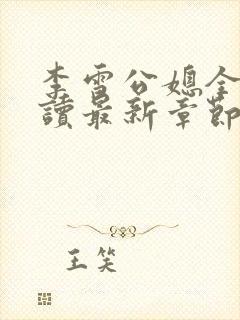 李雪公媳全
讀最新章節
王笑